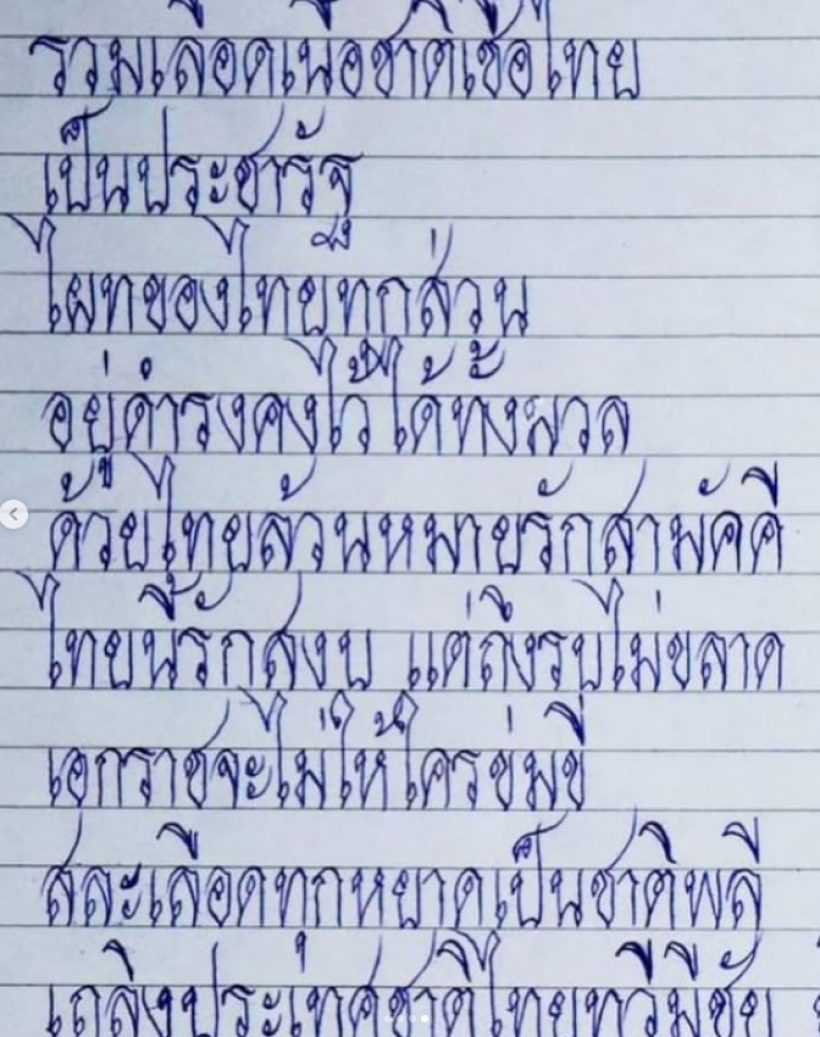 รวมเลือดเนื้อชาติเชื้อไทย
เป็นประชารัฐ
ไผทของไทยทุกส่วน
อยู่ดำรงคงไว้ได้ทั้งมวล
ด้วยไทยล้วนหมายรักสามัคคี
ไทยนี้รักสงบ แต่ถึงรบไม่ขลาด
เอกราชจะไม่ให้ใครข่มขี่
สละเลือดทุกหยาดเป็นชาติพลี
เถลิงประเทศชาติไทยทวีมีชัย